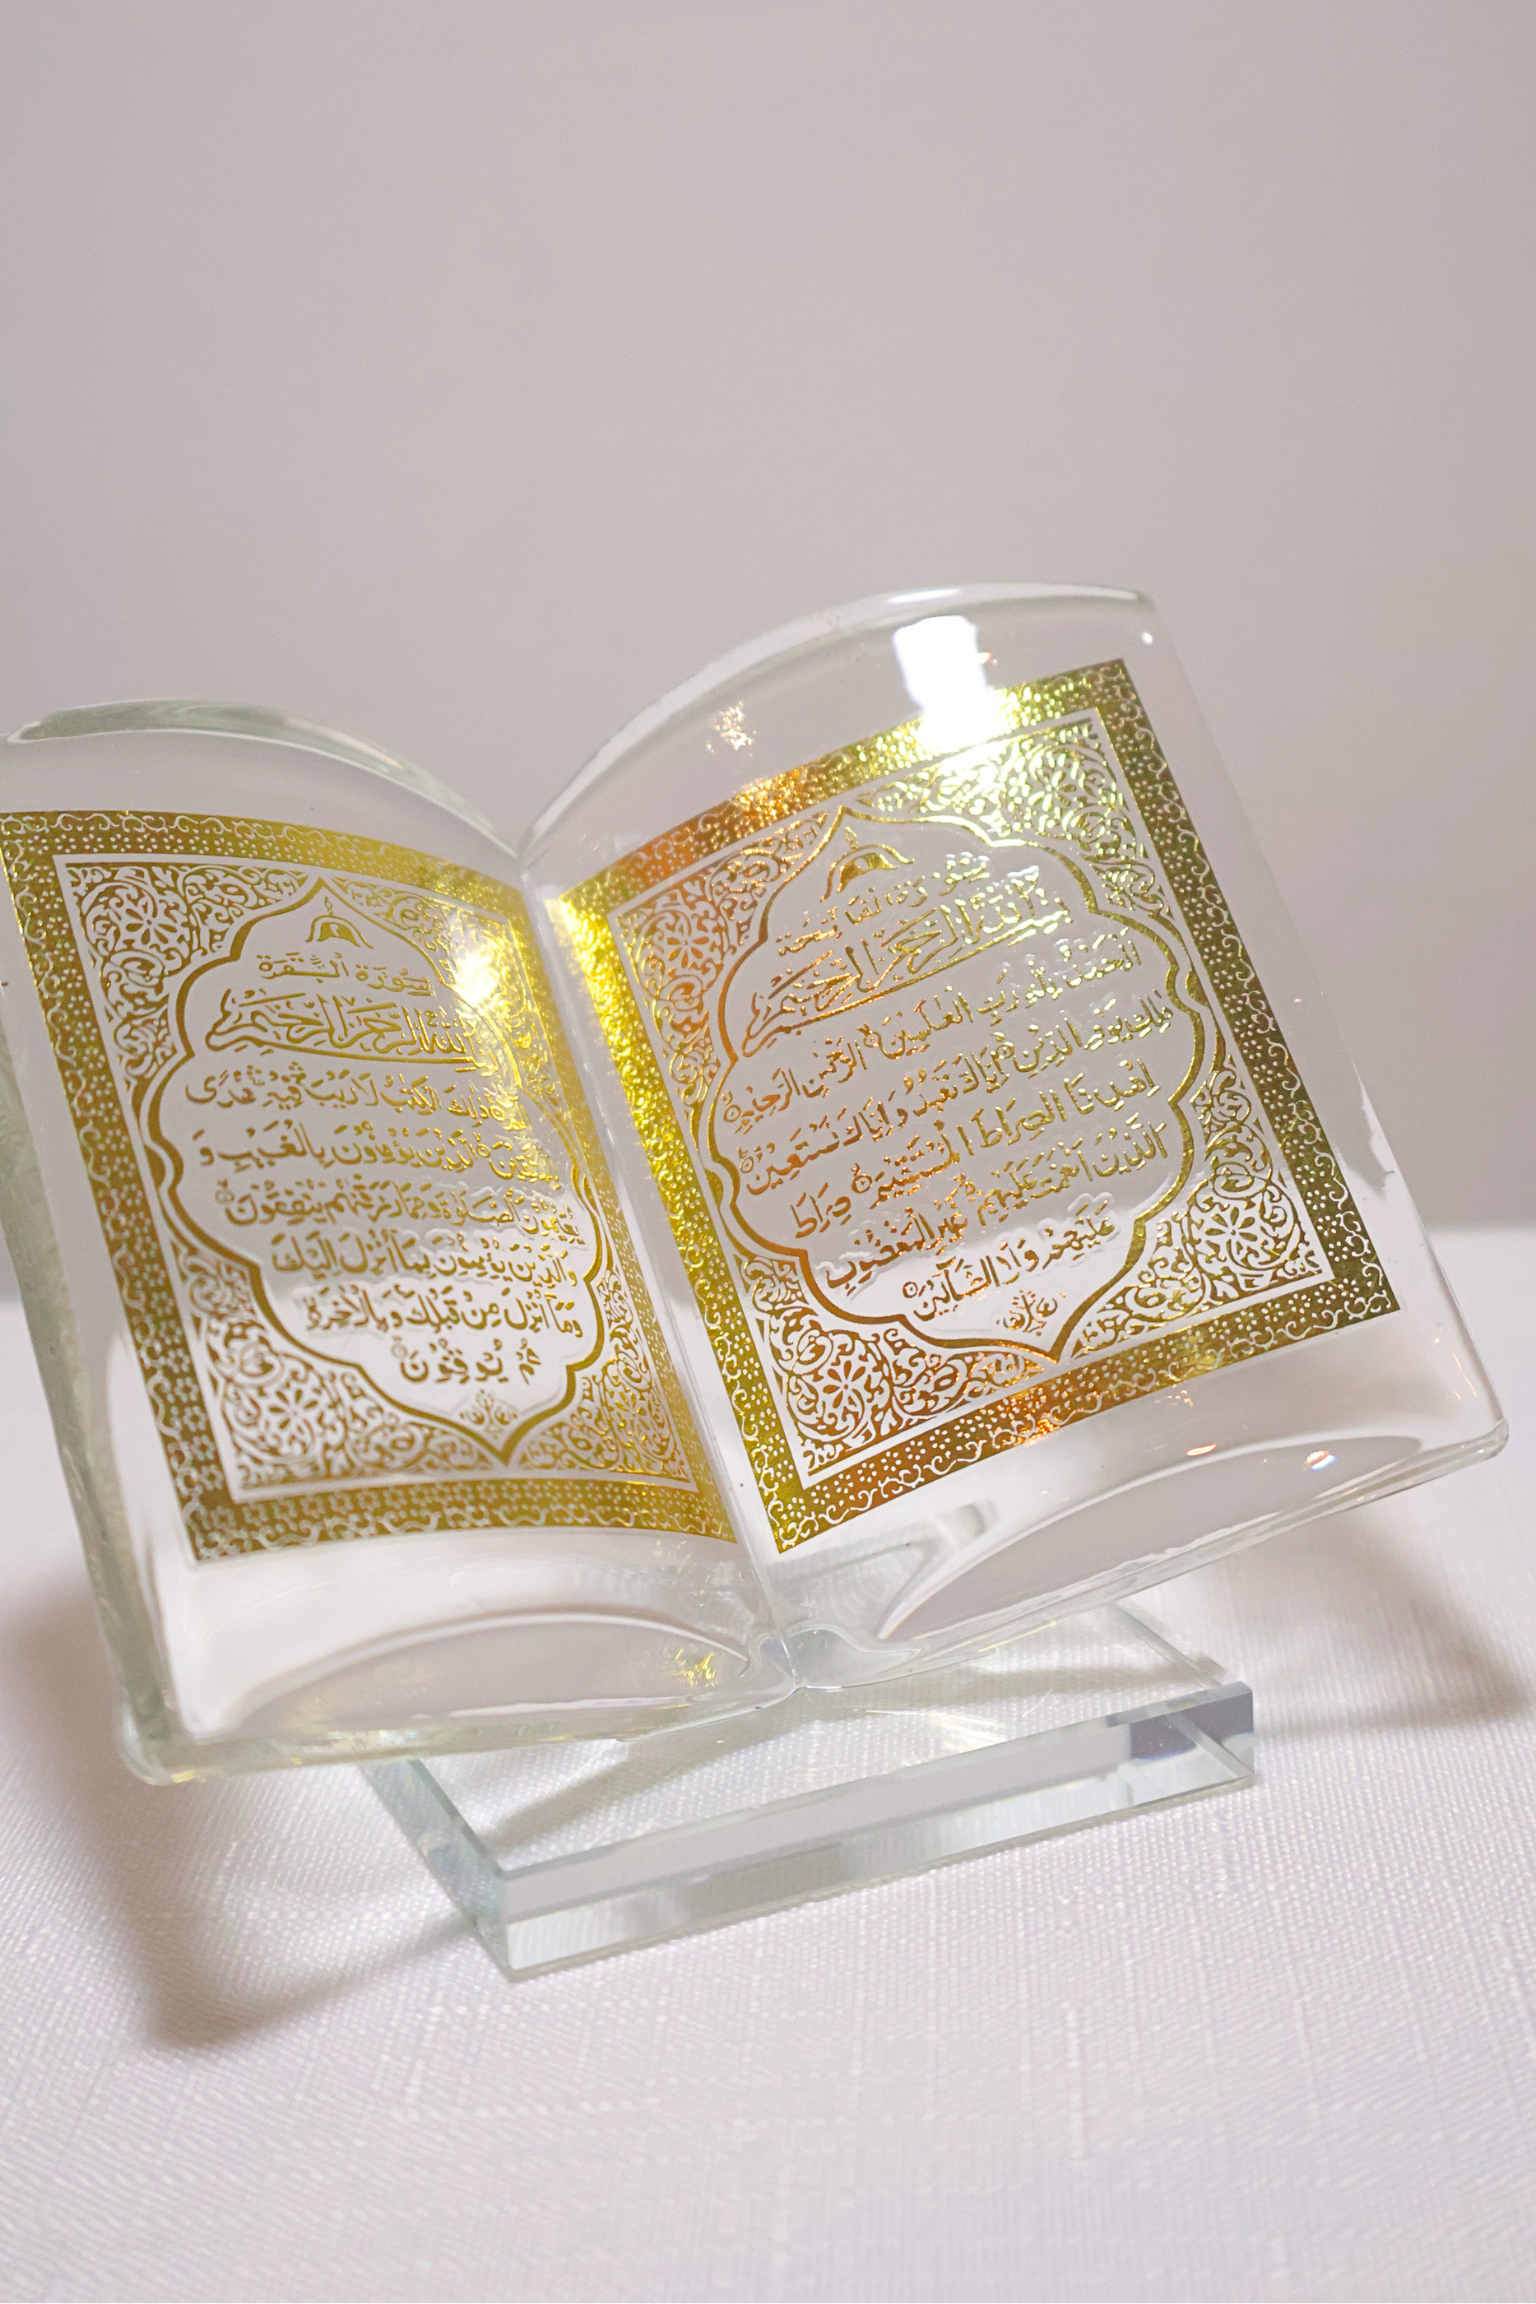 سورة الفاتحة
بسم الله الرحمن الرحيم
الحمد لله رب العلمين الرحمن الرحيم
ملك يوم الدين اياك نعبد واياك نستعين
اهدنا الصراط المستقيم صراط
الذين انعمت عليهم غير المغضوب
عليهم ولا الضالين
سورة البقرة
بسم الله الرحمن الرحيم
ذلك الكتب لا ريب فيه هدى
الذين يؤمنون بالغيب و
يقيمون الصلوة ومما رزقنهم ينفقون
والذين يؤمنون بما أنزل اليك
وما أنزل من قبلك وبالاخرة
هم يوقنون